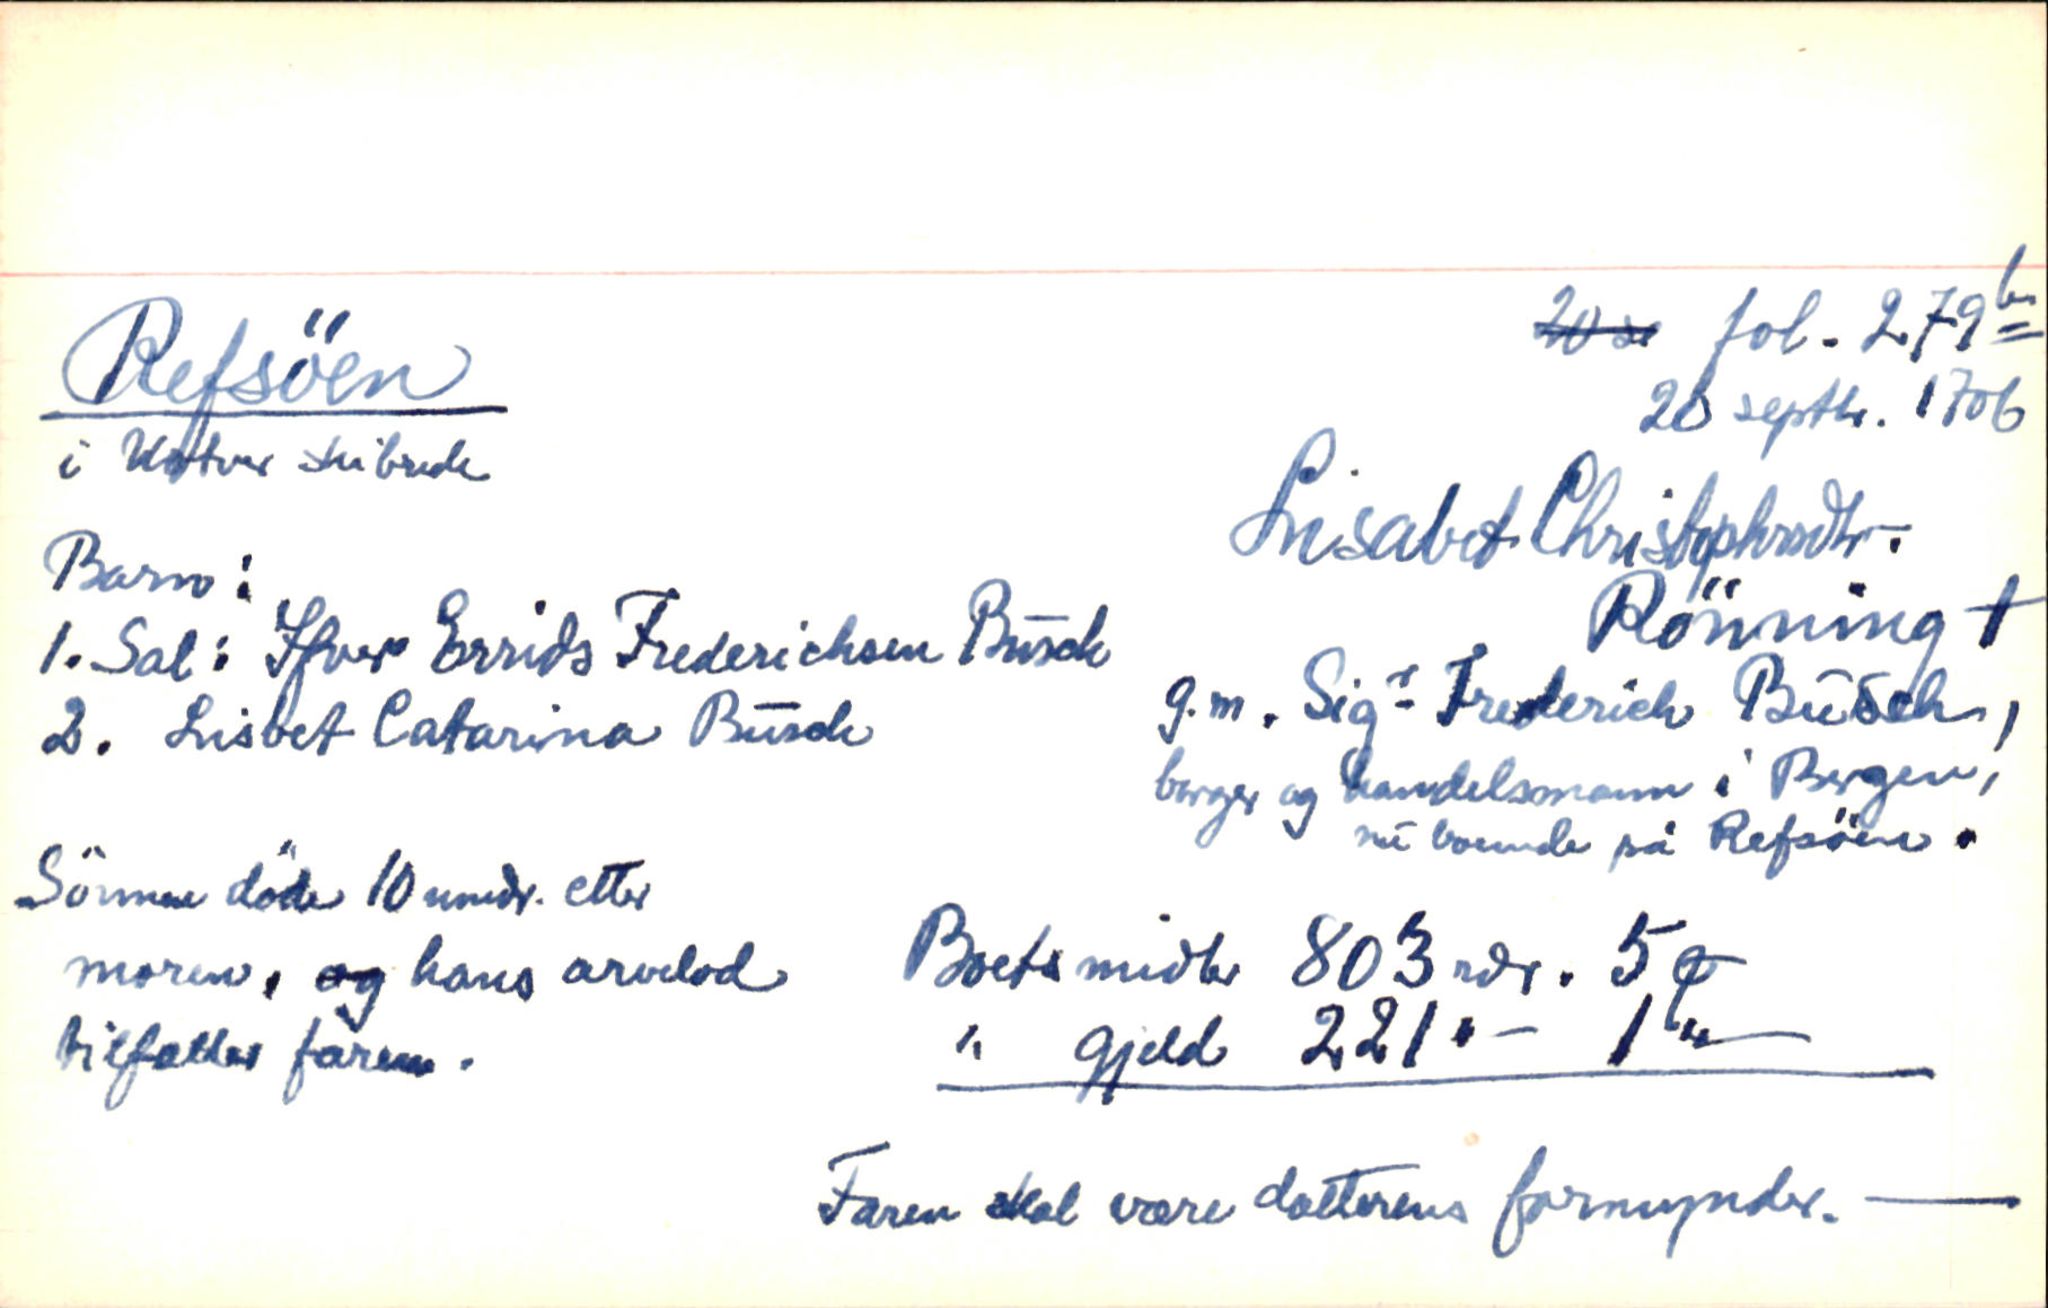 fol. 279 b
26 septbr. 1706
Refsöen
i Utvær skibrede
Lisabet Christophrsdtr.
Rönning †
g. m. Sigr Frederich Büsch,
borger og handelsmann i Bergen,
nū boende på Refsöen.
Barn:
1. Sal: Ifver Errids Frederichsen Büsch
2. Lisbet Catarina Büsch
Sönnen döde 10 mndr. etter
moren, og hans arvelod
tilfaller faren.
Boets midler 803 rdr. 5 ß
" gjeld 221 " - 1 "
Faren skal være datterens formynder. —